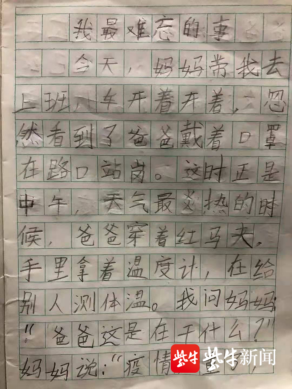 我最难忘的事
今天，妈妈带我去
上班，车开着开着，忽
然看到了爸爸戴着口罩
在路口站岗。这时正是
中午，天气最炎热的时
候，爸爸穿着红马夹，
手里拿着温度计，在给
别人测体温。我问妈妈
“爸爸这是在干什么？”
妈妈说：“疫情
紫牛 紫牛新闻